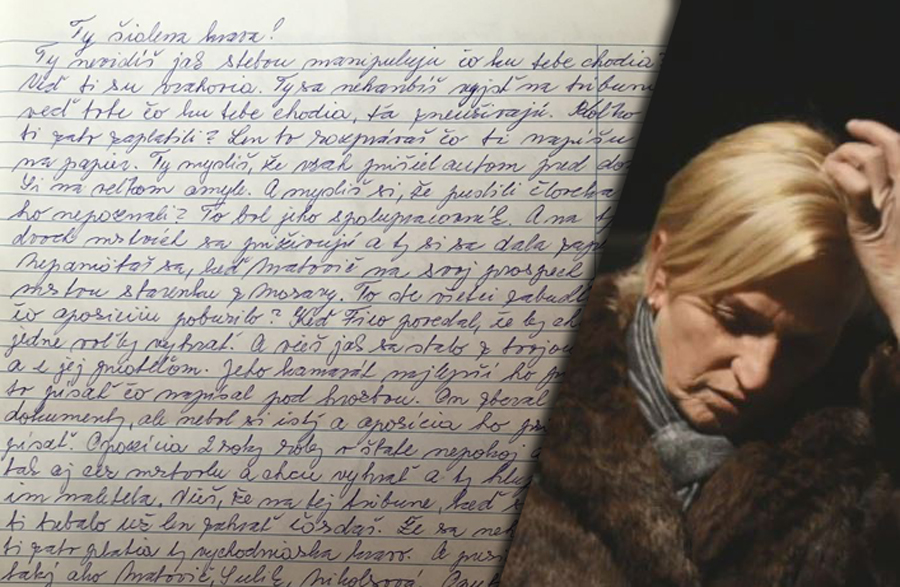 Ty šialena krava!
Ty nevidíš jak stebou manipuluju čo ku tebe chodia?
Veď ti su vrahovia. Ty sa nehanbíš vyjsť na tribunu
veď toto čo ku tebe chodia, ťa zneužívajú. Koľko
ti zato zaplatili? Len to rozprávaš čo ti napíšu
na papier. Ty myslíš, že vrah prišiel autom pred do
Si na veľkom omyle. A myslíš si, že pustili človeka
ho nepoznali? To bol jeho spolupracovník. A na t
dvoch mrtvích sa priživujú a ty si sa dala zap
Nepamätáš sa, keď Matovič na svoj prospech
mrtvu starenku z Moravy. To ste všetci zabudli
čo opozíciu poburilo? Keď Fico povedal, že by ch
jedne voľby vyhrať. A vieš jak sa stalo z tvojou
a s jej priateľom. Jeho kamarát najlepší ho
to písať čo napísal pod hrozbou. On zberal
dokumenty, ale nebol si istý a opozícia ho
písať. Opozícia 2 roky roby v štate nepokoj a
tak aj cez mrtvolu a chcu vyhrať a ty
im naletela. Vieš, že na tej tribune, keď s
ti trebalo už len zahrať čardáš. Že sa neh
ti zato platia ty vychodniarska kravo. A
taký ako Matovič, Sulík, Nikolsová,